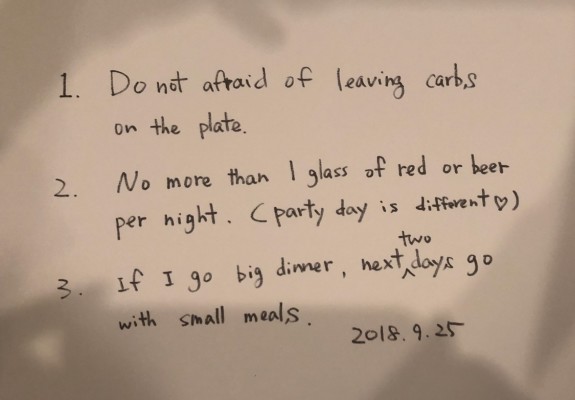 1. Do not afraid of leaving carbs
on the plate.
2. No more than 1 glass of red or beer
per night. (party day is different♡)
3. If I go big dinner, next two days go
with small meals.
2018.9.25